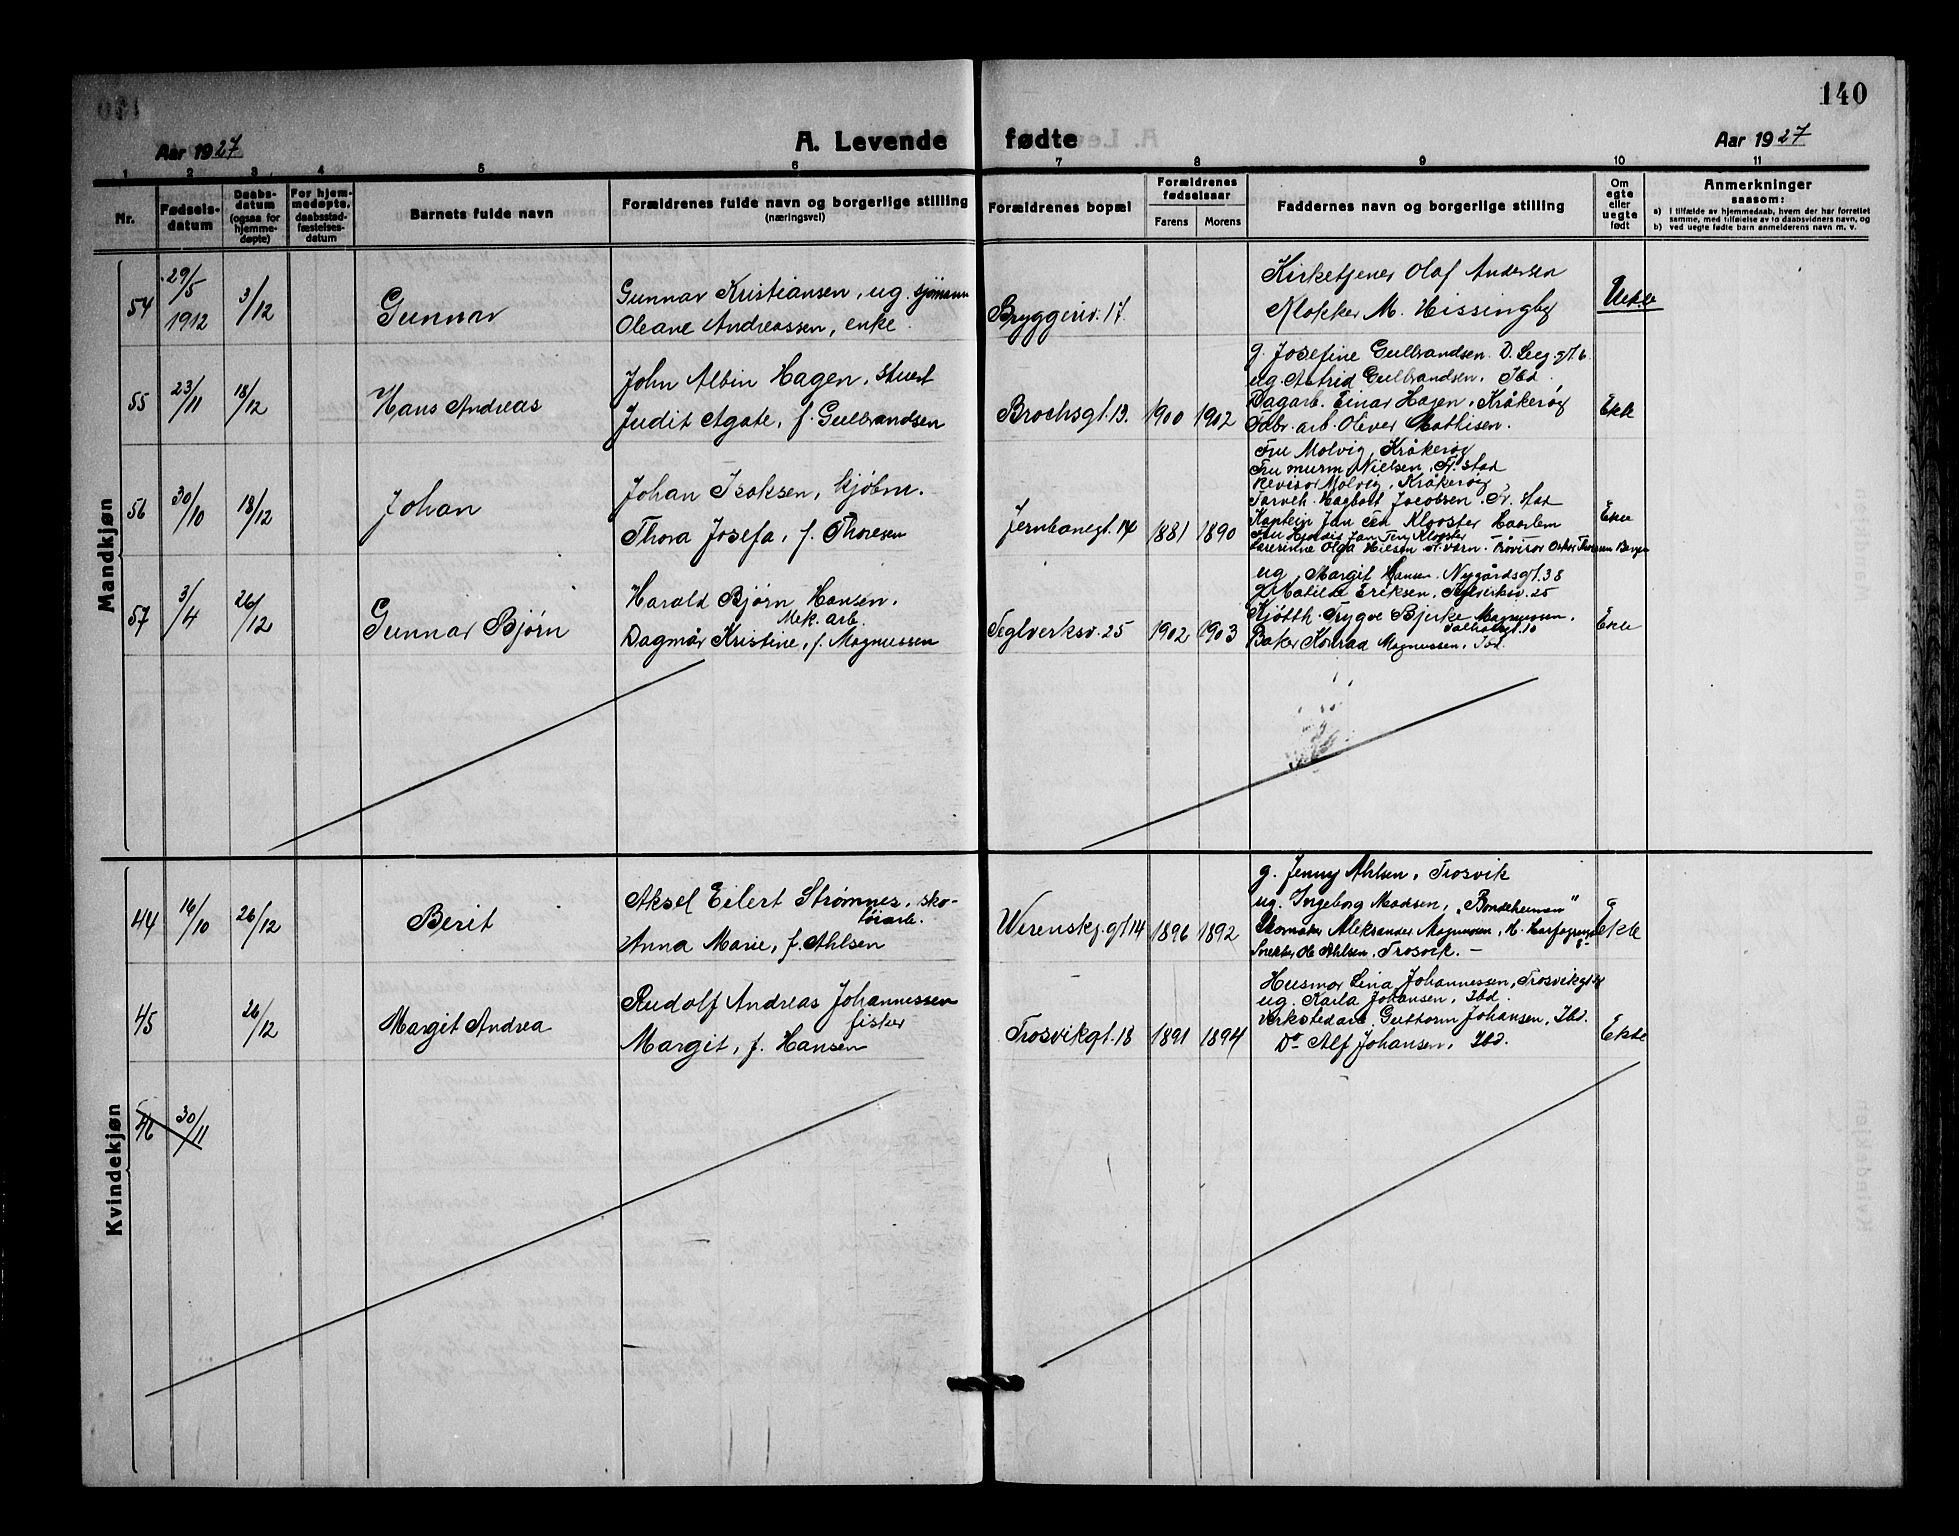 140
Aar 1927
A. Levende fødte
Aar 1927
1 2 3 4 5 6 7 8 9 10 11
Nr.
Fødsels-
datum
Daabs-
datum
(ogsaa for
hjemme-
døpte)
For hjem-
medøpte,
daabsstad-
fæstelses-
datum
Barnets fulde navn
Forældrenes fulde navn og borgerlige stilling
(næringsvei)
Forældrenes bopæl
Forældrenes
fødselsaar
Farens Morens
Faddernes navn og borgerlige stilling
Om
egte
eller
uegte
født
Anmerkninger
saasom:
a) I tilfælde av hjemmedaab, hvem der har forrettet
samme, med tilføielse av to daabsvidners navn, og
b) ved uegte fødte barn anmelderens navn m. v.
Mandkjøn
54
29/5
1912
3/12
Gunnar
Gunnar Kristiansen, ug. sjømann
Oleane Andreassen, enke.
Bryggeriv. 17.
Kirketjener Olaf Andersen
Klokker M. Hissingby
Uekte
55
23/11
18/12
Hans Andreas
John Albin Hagen, stuert
Judit Agate, f. Gulbrandsen
Brochsgt. 13.
1900
1902
g. Josefine Gulbrandsen. D. Leeg. gt. 6.
ug. Astrid Gulbrandsen. Ibd.
Dagarb. Einar Hagen, Kråkerøy
Fabr. arb. Oliver Mathisen.
Ekte
56
30/10
18/12
Johan
Johan Isaksen, kjøbm.
Thora Josefa, f. Thoresen
Jernbanegt. 14
1881
1890
Fru Molvig, Kråkerøy
Fru murm. Nielsen, Fr.stad
Revisor Molvig, Kråkerøy
Farveh. Hagbart Jacobsen. Fr. stad
Kaptein Jan ten Klooster Haarlem
Fru Hjørdis Jan Ten Klooster
Lærerinne Olga Nielsen Fr.værn. - Provisor Oskar Thoresen Bergen
Ekte
57
3/4
26/12
Gunnar Bjørn
Harald Bjørn Hansen,
Mek. arb.
Dagmar Kristine, f. Magnussen
Teglverksv. 25
1902
1903
ug. Margit Hansen. Nygårdsgt. 38
g. Matilde Eriksen, Teglverksv. 25
Kjøtth. Trygve Bjerke Magnussen,
Baker Konrad Magnussen, Ibd.
Ekte
Kvindekjøn
44
16/10
26/12
Berit
Aksel Eilert Strømnes, sko-
tøiarb.
Anna Marie, f. Ahlsen
Werenskj. gt 14
1896
1892
g. Jenny Ahlsen, Trosvik
ug. Ingeborg Madsen, "Bondeheimen"
Skomaker Aleksander Magnussen, H.
Snekker Ole Ahlsen, Trosvik. -
Ekte
45
26/12
Margit Andrea
Rudolf Andreas Johannessen
fisker
Margit, f. Hansen
Trosvikgt. 18
1891
1894
Husmor Lina Johannessen, Trosvikgt.
ug. Karla Johansen, Ibd.
Verkstedarb. Guttorm Johansen, Ibd.
Do Alf Johansen, Ibd.
Ekte
46
30/11